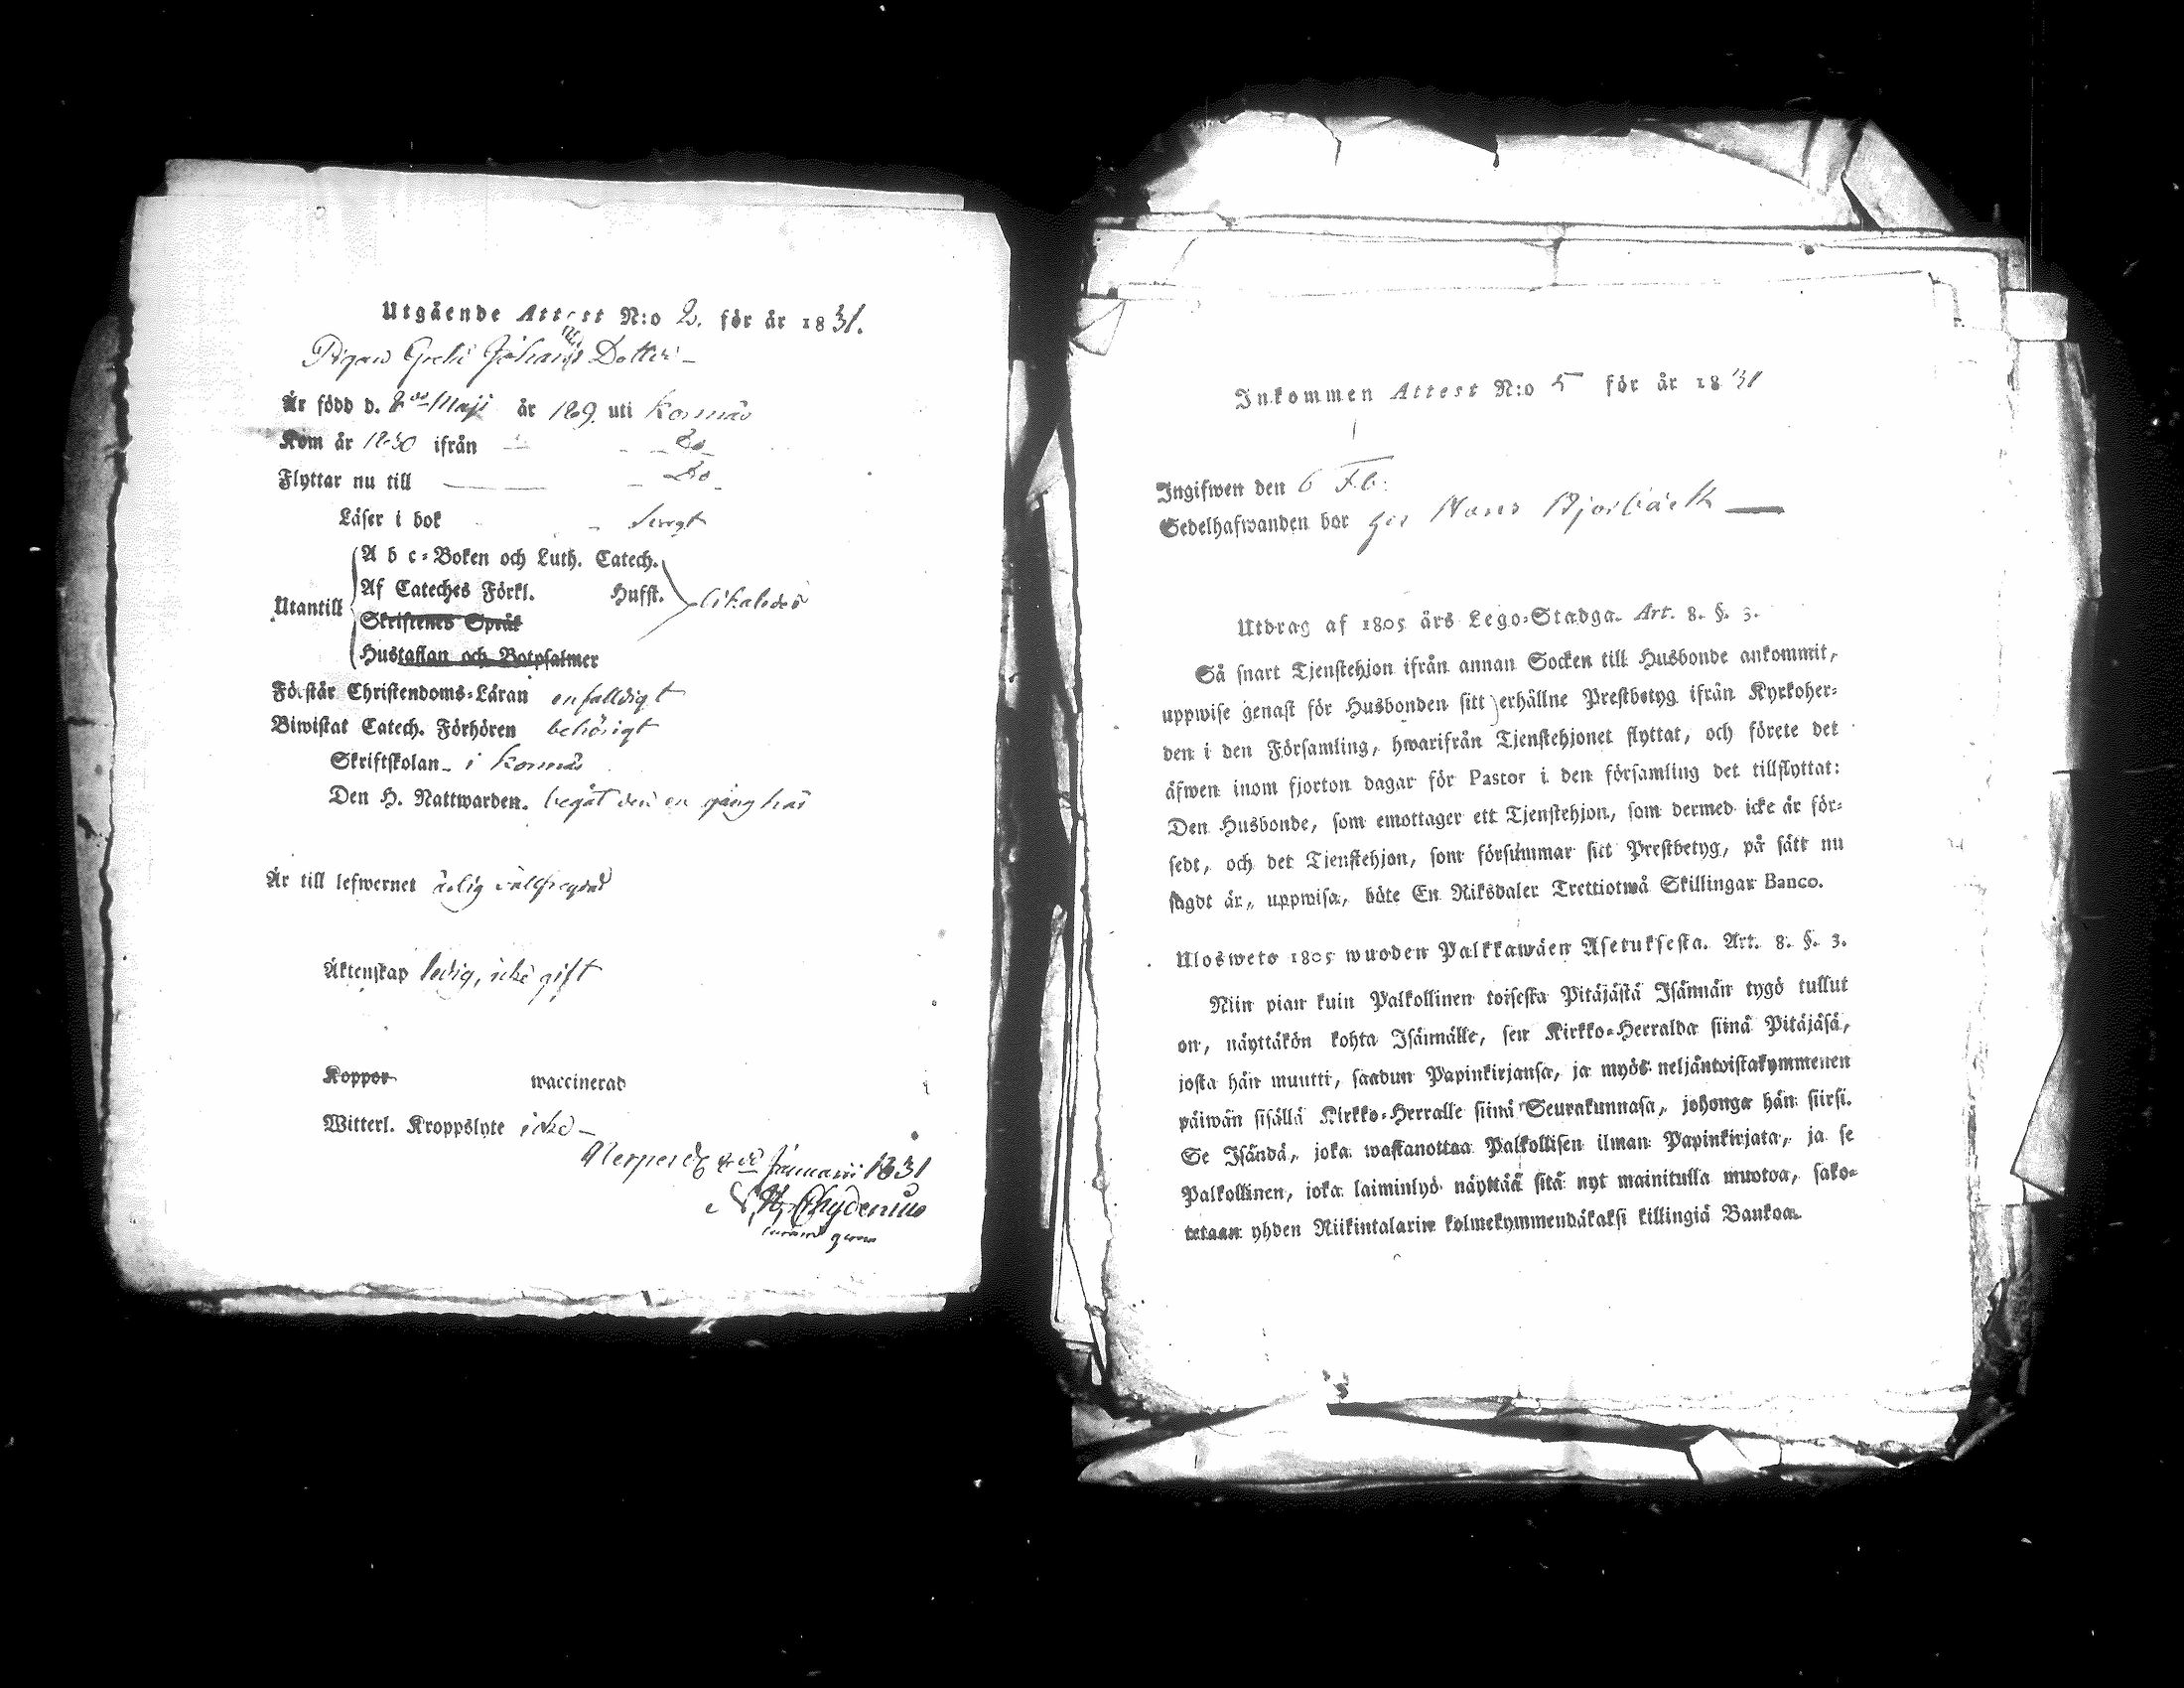 Utgående Attest N:o 2. för år 1831.
Pigan Greta Johans Dotter
Är född d. 8de Maji år 1809. uti Korsnäs
Kom år 1830 ifrån Do
Flyttar nu till Do
Läser i bok svagt
A b c-Boken och Luth. Catech.
Af Cateches Förkl. Husst. likaledes
Utantill
Skriftenes Språk
Hustaflan och Botpsalmer
Förstår Christendoms-Läran enfalldigt
Biwistat Catech. Förhören behörigt
Skriftskolan i Korsnäs
Den H. Nattwarden. begåt den en gång här
Är till lefwernet ärlig välfrejdad
Äktenskap ledig, icke gift
Koppor waccinerad
Witterl. Kroppslyte icke
Januarii 1831
Chydenius
Inkommen Attest N:o 5 för år 1831
Ingifwen den 6 Feb:
Sedelhafwanden bor hos Hans Bjorbäck
Utdrag af 1805 års Lego-Stadga. Art. 8. §. 3.
Så snart Tjenstehjon ifrån annan Socken till Husbonde ankommit,
uppwise genast för Husbonden sitt erhållne Prestbetyg ifrån Kyrkoher-
den i den Församling, hwarifrån Tjenstehjonet flyttat, och förete det
äfwen inom fjorton dagar för Pastor i den församling det tillflyttat:
Den Husbonde, som emottager ett Tjenstehjon, som dermed icke är för-
sedt, och det Tienstehjon, som försummar sitt Prestbetyg, på sätt nu
sagdt är, uppwisa, böte En Riksdaler Trettiotwå Skillingar Banco.
Ulosweto 1805 wuoden Palkkawäen Asetuksesta. Art. 8. §. 3.
Niin pian kuin Palkollinen toisesta Pitäjästä Isännän tygö tullut
on, näyttäkön kohta Isännälle, sen Kirkko-Herralda siinä Pitäjäsä,
josta hän muutti, saadun Papinkirjansa, ja myös neljäntoistakymmenen
päiwän sisällä Kirkko-Herralle siinä Seurakunnasa, johonga hän siirsi.
Se Isändä, joka wastanottaa Palkollisen ilman Papinkirjata, ja se
Palkollinen, joka laiminlyö näyttää sitä nyt mainitulla muotoa, sako-
tetaan yhden Riikintalarin kolmekymmendäkaksi killingiä Bankoa.